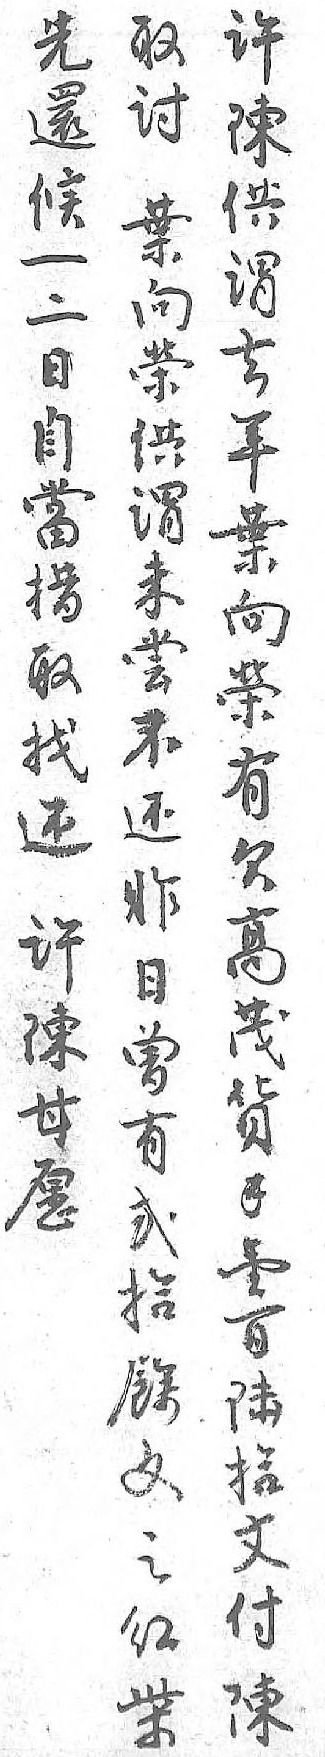 許陳供謂去年葉向榮有欠高茂貨𠄻壹百陸拾文付陳
取討葉向榮供謂未嘗不还昨日曾有弍拾餘文之紅柴
先還候一二日自當措取找还許陳甘愿